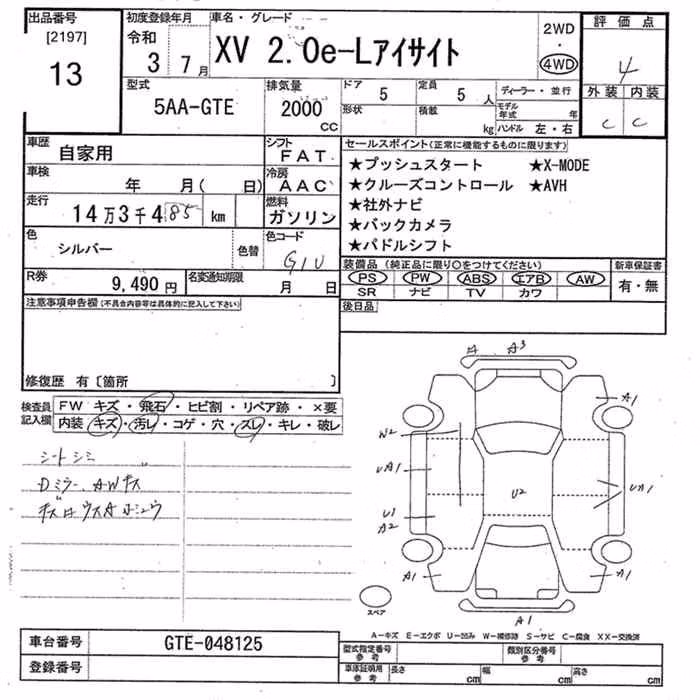 出品番号
[2197]
13
初度登録年月
令和
3 7月
車名・グレード
XV 2.0e-Lアイサイト
2WD
・
4WD
評価点
4
外装 内装
C C
型式
5AA-GTE
排気量
2000
cc
ドア
5
定員
5 人
形状
積載
kg
ディーラー・並行
モデル年式 年
ハンドル 左・右
車歴
自家用
シフト
FAT
車検
年 月( 日)
冷房
AAC
走行
14万3千485 km
燃料
ガソリン
色
シルバー
色替
色コード
G1U
R券
9,490円
名変通知期限
月 日
セールスポイント(正常に機能するものに限ります)
★プッシュスタート ★X-MODE
★クルーズコントロール ★AVH
★社外ナビ
★バックカメラ
★パドルシフト
装備品(純正品に限り○をつけてください)
PS PW ABS エアB AW
SR ナビ TV カワ
新車保証書
有・無
後日品
注意事項申告欄(不具合内容等は具体的に記入して下さい)
修復歴 有〔箇所 〕
検査員記入欄
FW キズ・飛石・ヒビ割・リペア跡・×要
内装・キズ・汚レ・コゲ・穴・スレ・キレ・破レ
シートシミ
Dミラー、AWキズ
A A3
A1
W2
UA1
U1
A2
U2
UA1
A1
A1
A1
スペア
A-キズ E-エクボ U-凹み W-補修跡 S-サビ C-腐食 XX-交換済
車台番号
GTE-048125
登録番号
型式指定番号
参考
類別区分番号
参考
車庫証明用
参考
長さ cm
幅 cm
高さ cm